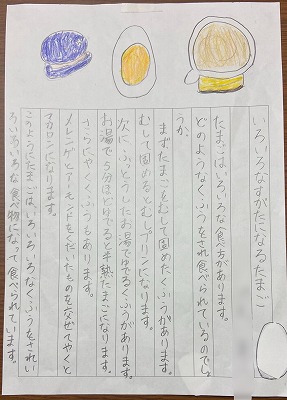 いろいろなすがたになるたまご
たまごはいろいろな食べ方があります。
どのようなくふうをされ食べられているのでしょ
うか。
まずたまごをむして固めたくふうがあります。
むして固めるとむしプリンになります。
次にふっとうしたお湯でゆでるくふうがあります。
お湯で5分ほどゆでると半熟たまごになります。
さらにやくくふうもあります。
メレンゲとアーモンドをくだいたものを交ぜてやくと
マカロンになります。
このようにたまごはいろいろなくふうをされい
ろいろな食べ物になって食べられています。